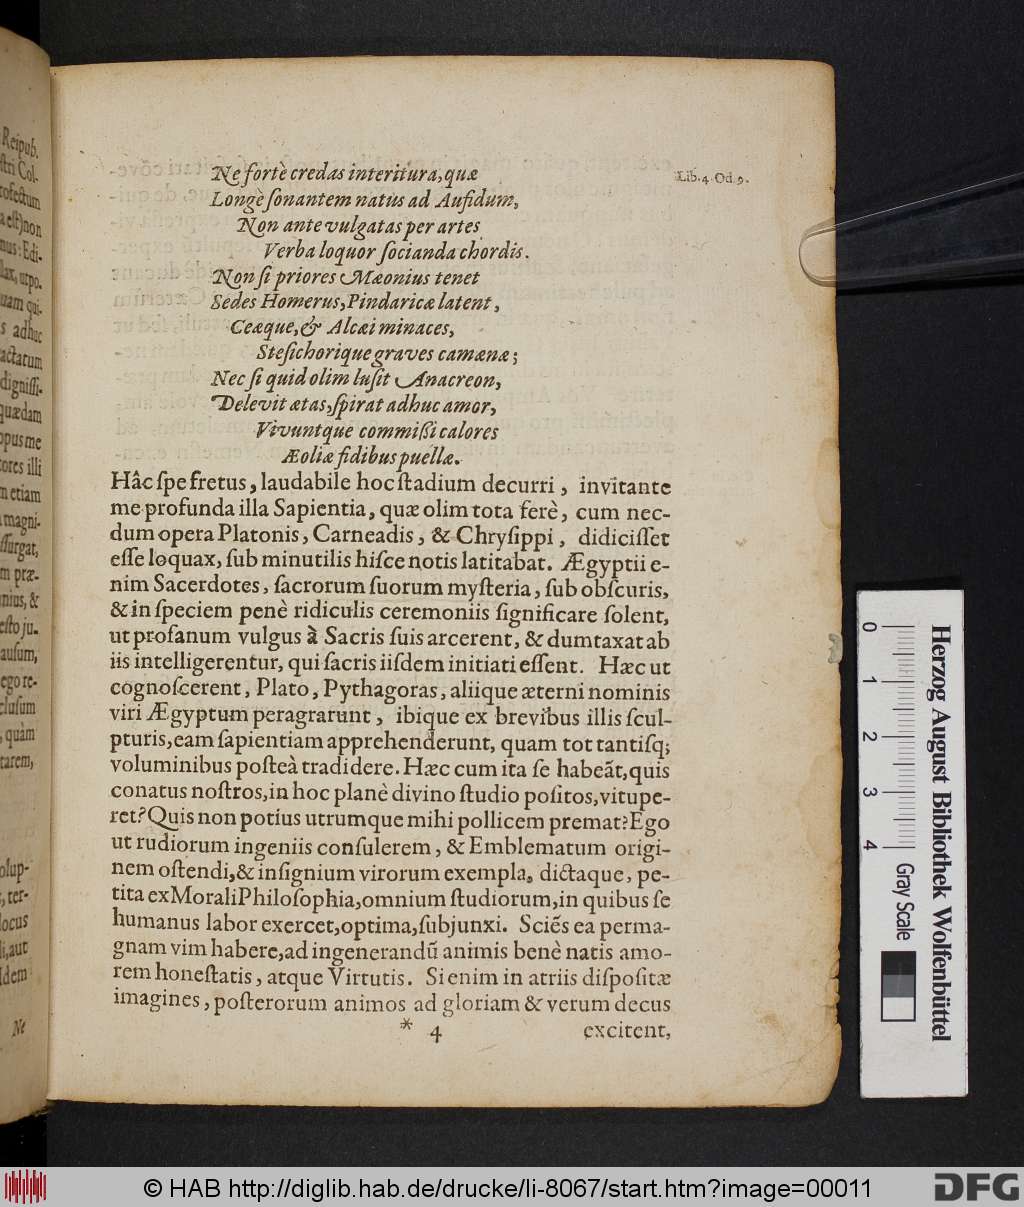 Reipub.
stri Col-
rofectum
a est) non
mus: Edi-
lax, utpo-
uam qui-
s adhuc
actatum
digniſſi-
quædam
opus me
tores illi
n etiam
magni-
ſſurgat,
m præ-
nius, &
eſto ju-
auſum,
ego re-
cluſum
, quàm
tarem,
olup-
, ter-
locus
li, aut
Idem
Ne
Ne fortè credas interitura, quæ
Lib. 4. Od. 9.
Longè ſonantem natus ad Aufidum,
Non ante vulgatas per artes
Verba loquor ſocianda chordis.
Non ſi priores Mæonius tenet
Sedes Homerus, Pindaricæ latent,
Ceæque, & Alcæi minaces,
Steſichorique graves camænæ;
Nec ſi quid olim luſit Anacreon,
Delevit ætas, ſpirat adhuc amor,
Vivuntque commißi calores
Æoliæ fidibus puellæ.
Hâc ſpe fretus, laudabile hoc ſtadium decurri, invitante
me profunda illa Sapientia, quæ olim tota ferè, cum nec-
dum opera Platonis, Carneadis, & Chryſippi, didiciſſet
eſſe loquax, ſub minutilis hiſce notis latitabat. Ægyptii e-
nim Sacerdotes, ſacrorum ſuorum myſteria, ſub obſcuris,
& in ſpeciem penè ridiculis ceremoniis ſignificare ſolent,
ut profanum vulgus à Sacris ſuis arcerent, & dumtaxat ab
iis intelligerentur, qui ſacris iiſdem initiati eſſent. Hæc ut
cognoſcerent, Plato, Pythagoras, aliique æterni nominis
viri Ægyptum peragrarunt, ibique ex brevibus illis ſcul-
pturis, eam ſapientiam apprehenderunt, quam tot tantiſq;
voluminibus poſteà tradidere. Hæc cum ita ſe habeãt, quis
conatus noſtros, in hoc planè divino ſtudio poſitos, vitupe-
ret? Quis non potíus utrumque mihi pollicem premat? Ego
ut rudiorum ingeniis conſulerem, & Emblematum origi-
nem oſtendi, & inſignium virorum exempla, dictaque, pe-
tita ex Morali Philoſophia, omnium ſtudiorum, in quibus ſe
humanus labor exercet, optima, ſubjunxi. Sciẽs ea perma-
gnam vim habere, ad ingenerandũ animis benè natis amo-
rem honeſtatis, atque Virtutis. Si enim in atriis diſpoſitæ
imagines, poſterorum animos ad gloriam & verum decus
* 4 excitent,
0 1 2 3 4
Gray Scale
Herzog August Bibliothek Wolfenbüttel
© HAB http://diglib.hab.de/drucke/li-8067/start.htm?image=00011
DFG